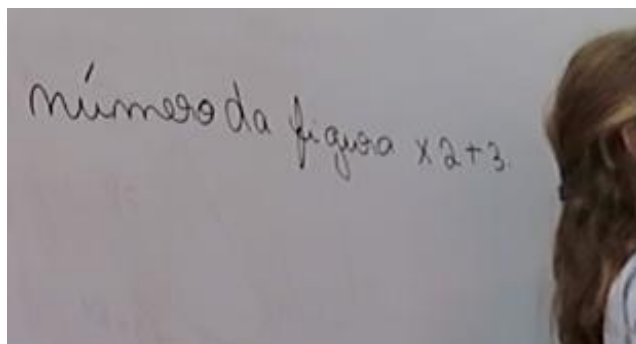 número da figura x2+3